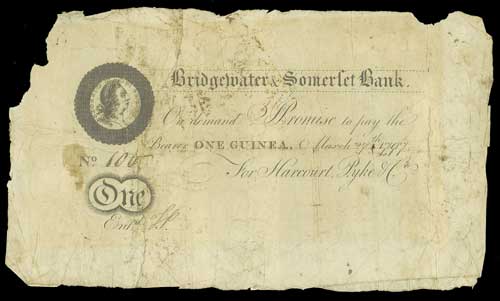 Bridgewater & Somerſet Bank.
On demand I Promise to pay the
Bearer ONE GUINEA. March 1797
No 100
For Harcourt, Pyke & Co.
One
Entd.